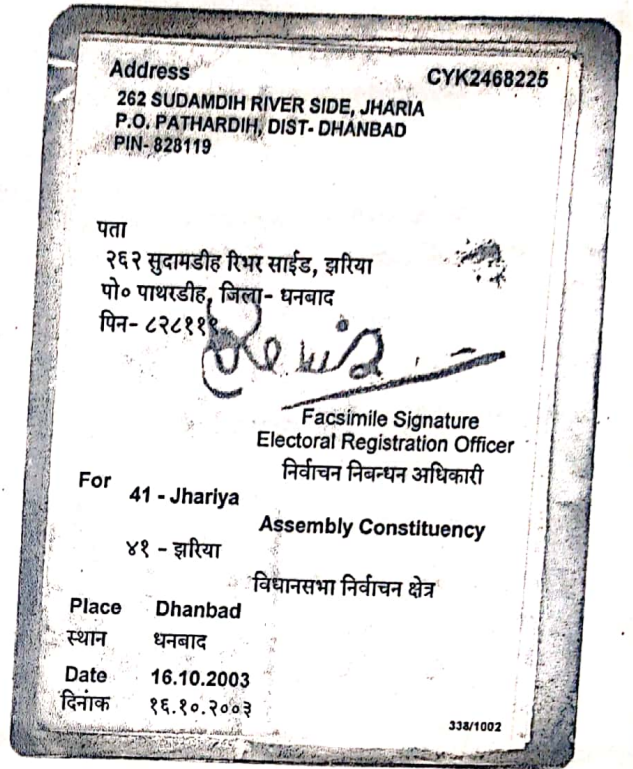 Address CYK2468225
262 SUDAMDIH RIVER SIDE, JHARIA
P.O. PATHARDIH, DIST- DHANBAD
PIN- 828119
पता
२६२ सुदामडीह रिभर साईड, झरिया
पो० पाथरडीह, जिला- धनबाद
पिन- ८२८११९
Facsimile Signature
Electoral Registration Officer
निर्वाचन निबन्धन अधिकारी
For 41 - Jhariya
Assembly Constituency
४१ - झरिया
विधानसभा निर्वाचन क्षेत्र
Place Dhanbad
स्थान धनबाद
Date 16.10.2003
दिनांक १६.१०.२००३
338/1002